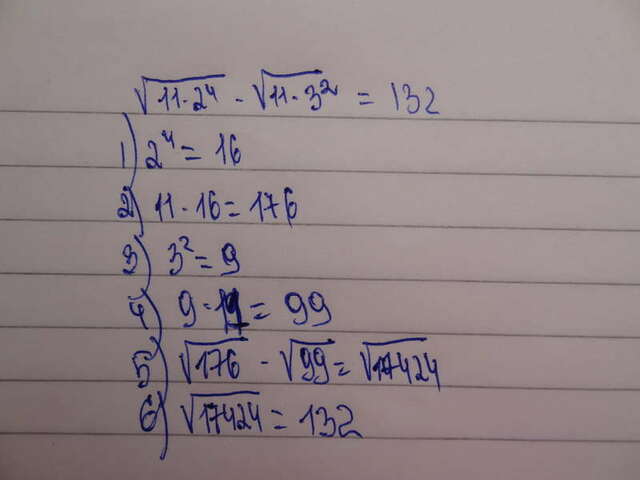 √11·2⁴ · √11·3² = 132
1) 2⁴ = 16
2) 11·16 = 176
3) 3² = 9
4) 9·11 = 99
5) √176 · √99 = √17424
6) √17424 = 132